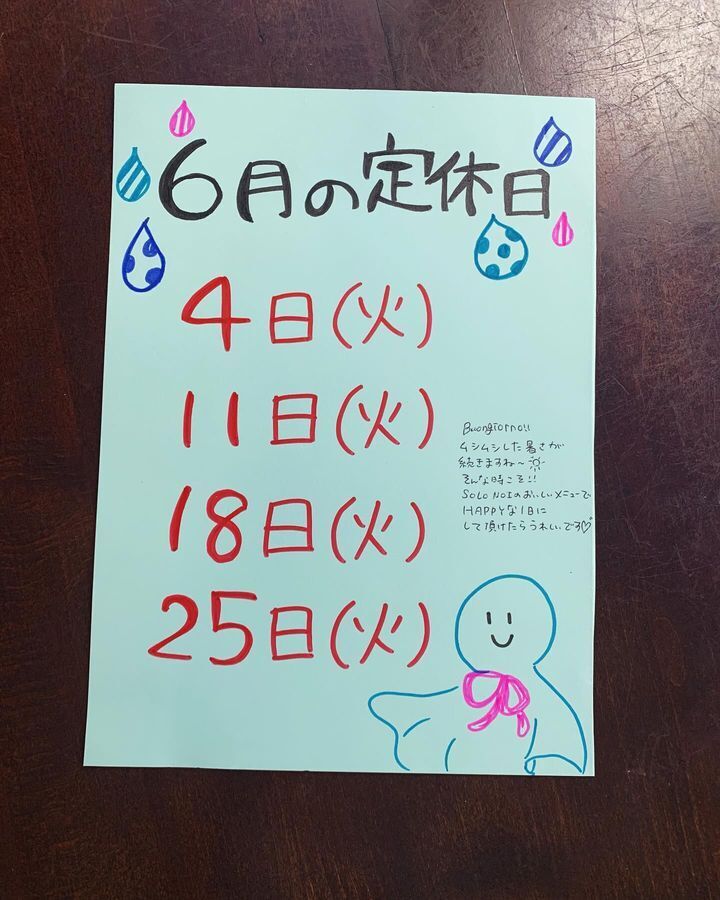 6月の定休日
4日(火)
11日(火)
18日(火)
25日(火)
Buongiorno!!
ムシムシした暑さが
続きますね〜
そんな時こそ!!
SOLO NOIのおいしいメニューで
HAPPYな1日に
して頂けたらうれしいです♡